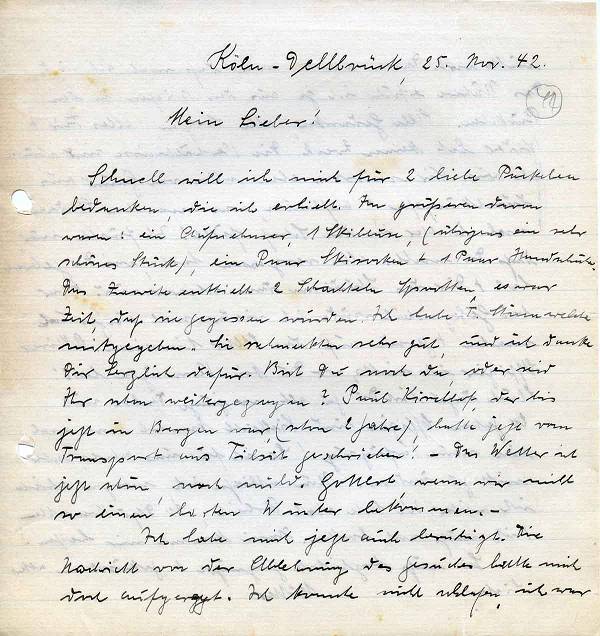 Köln-Dellbrück, 25. Nov. 42.
Mein Lieber!
Schnell will ich mich für 2 liebe Päckchen
bedanken, die ich erhielt. Im größeren davon
waren: ein Aufnehmer, 1 Skibluse, (übrigens ein sehr
schönes Stück), ein Paar Skisocken + 1 Paar Handschuhe.
Das Zweite enthielt 2 Schachteln Sprotten, es war
Zeit, daß sie gegessen wurden. Ich habe T.
mitgegeben. Sie schmeckten sehr gut, und ich danke
Dir herzlich dafür. Bist Du noch da, oder seid
Ihr schon weitergezogen? Paul Kirchhof, der bis
jetzt in Bergen war, (schon 2 Jahre), hatte jetzt vom
Transport aus Tilsit geschrieben! – Das Wetter ist
jetzt schön, noch mild. Gottlob wenn wir nicht
so einen harten Winter bekommen. –
Ich habe mich jetzt auch beruhigt. Die
Nachricht von der Ablehnung des Gesuches hatte mich
doch aufgeregt. Ich konnte nicht schlafen, ich war